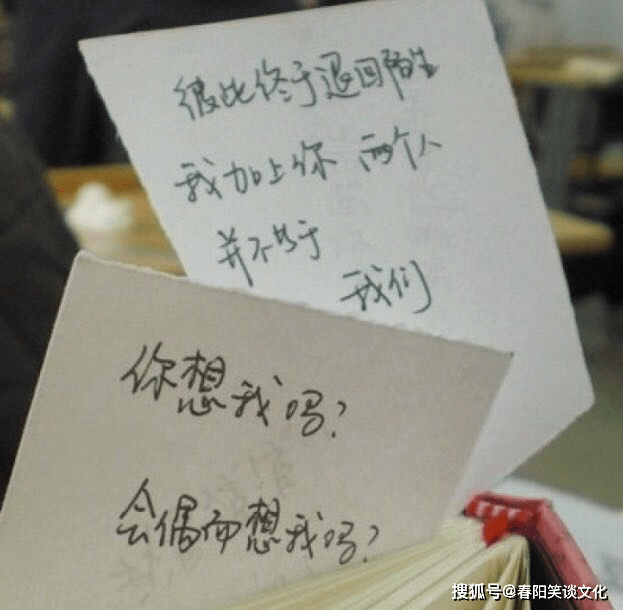 彼此终于退回陌生
我加上你 两个人
并不等于
我们
你想我吗?
会偶而想我吗?
搜狐号@春阳笑谈文化